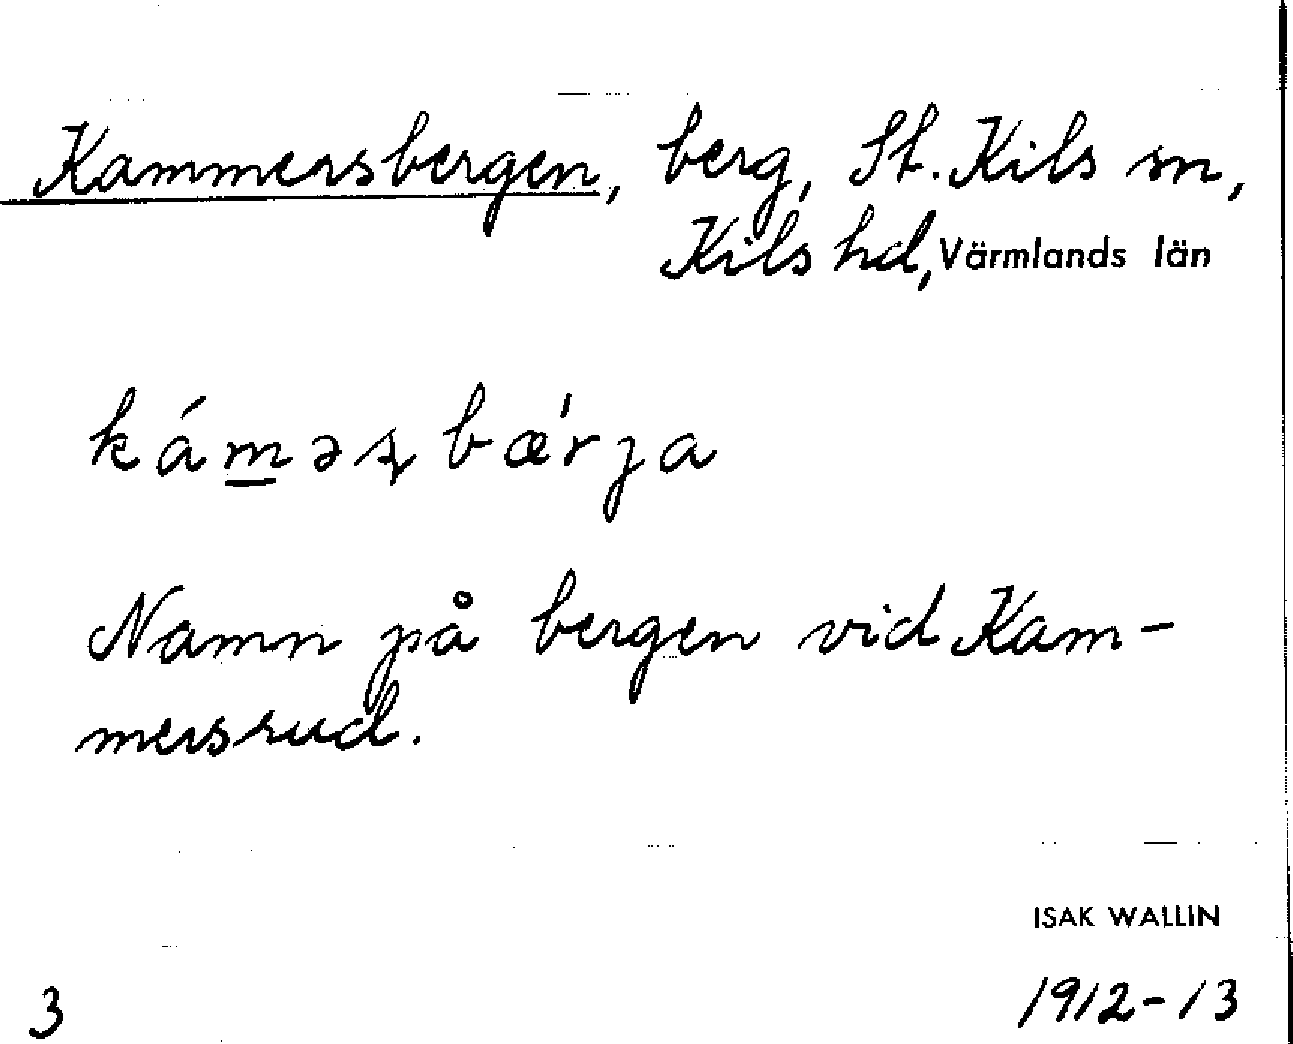 Kammersbergen, berg, St. Kils sn,
Kils hd, Värmlands län
káməʂbæ'rja
Namn på bergen vid Kam-
mersrud.
ISAK WALLIN
3
1912-13